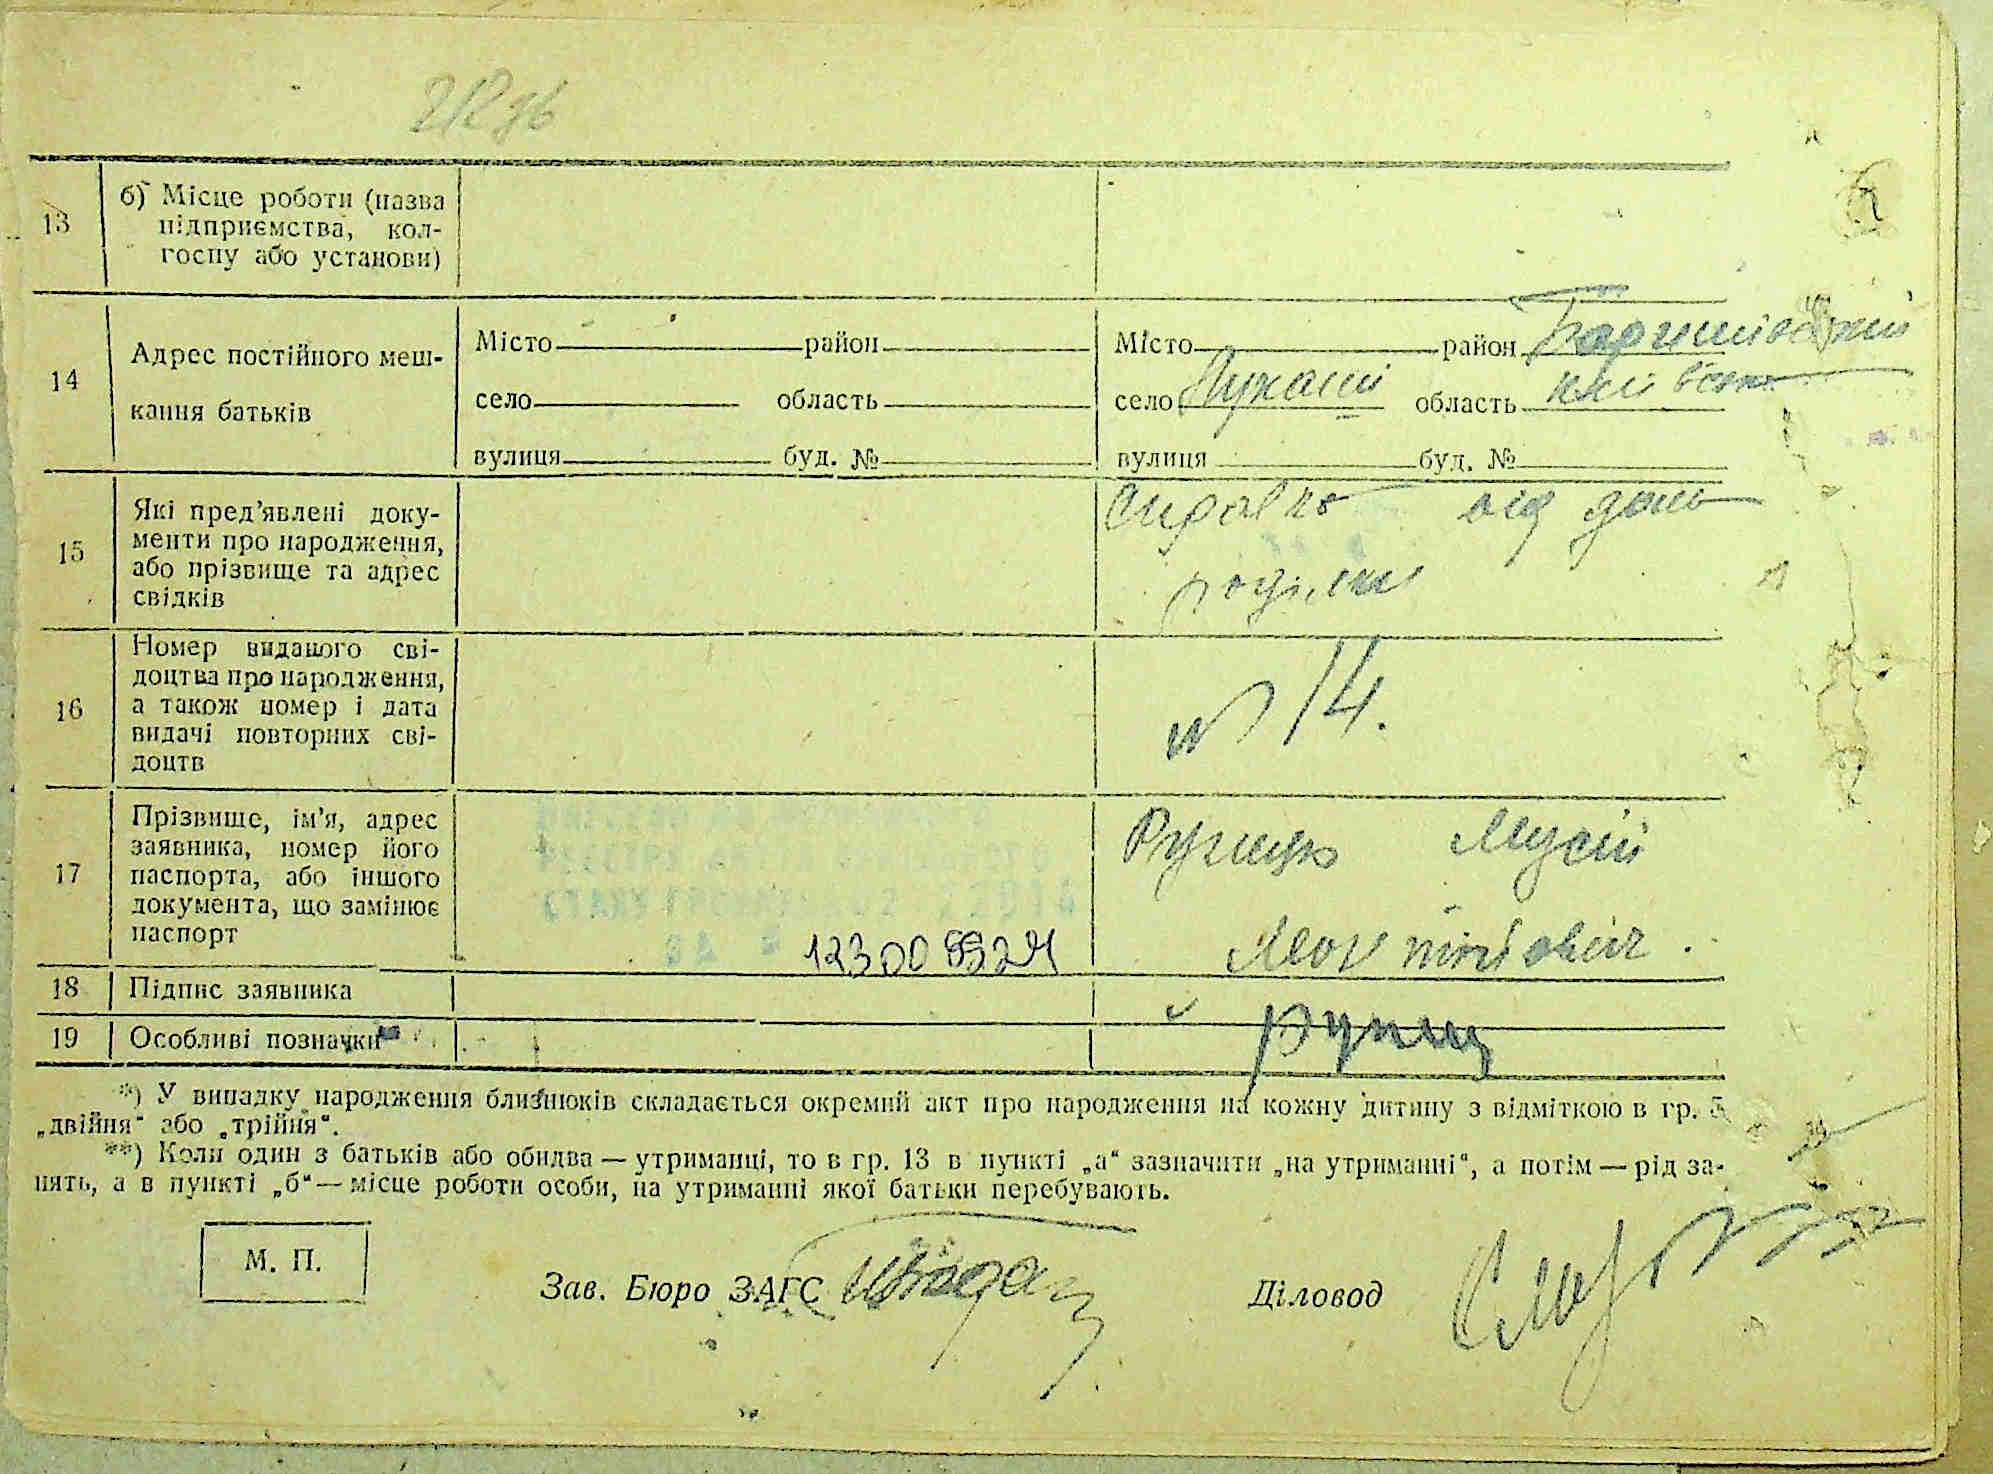 212 зв
13 б) Місце роботи (назва
підприємства, кол-
госпу або установи)
14 Адрес постійного меш-
кання батьків
Місто район
село область
вулиця буд. №
Місто район Баришівський
село Лукаші область Київськ
вулиця буд. №
15 Які пред'явлені доку-
менти про народження,
або прізвище та адрес
свідків
Справка від дому
16 Номер виданого сві-
доцтва про народження,
а також номер і дата
видачі повторних сві-
доцтв
№ 14.
17 Прізвище, ім'я, адрес
заявника, номер його
паспорта, або іншого
документа, що замінює
паспорт
12300
Мусій
18 Підпис заявника
19 Особливі позначки
*) У випадку народження близнюків складається окремий акт про народження на кожну дитину з відміткою в гр. 5
„двійня“ або „трійня“.
**) Коли один з батьків або обидва — утриманці, то в гр. 13 в пункті „а“ зазначити „на утриманні“, а потім — рід за-
нять, а в пункті „б“ — місце роботи особи, на утриманні якої батьки перебувають.
М. П.
Зав. Бюро ЗАГС
Діловод